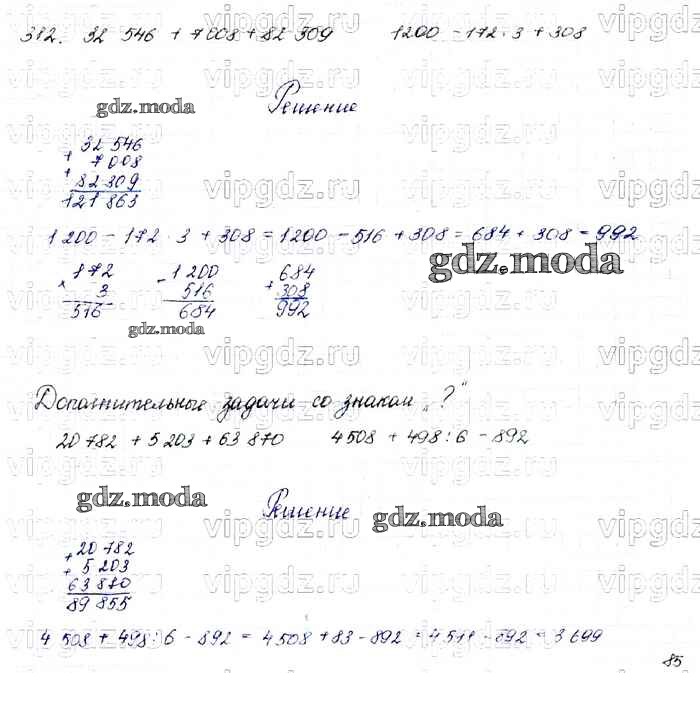 312. 32 546 + 7 008 + 82 309 1200 - 172 · 3 + 308
Решение
gdz.moda
32 546
+ 7 008
+ 82 309
121 863
1 200 - 172 · 3 + 308 = 1200 - 516 + 308 = 684 + 308 = 992
gdz.moda
172 1 200 684
× 3 - 516 + 308
516 684 992
gdz.moda
Дополнительные задачи со знаком „?"
20 782 + 5 203 + 63 870 4 508 + 498 : 6 - 892
gdz.moda Решение gdz.moda
20 782
+ 5 203
+ 63 870
89 855
4 508 + 498 : 6 - 892 = 4 508 + 83 - 892 = 4 591 - 892 = 3 699
85
vipgdz.ru